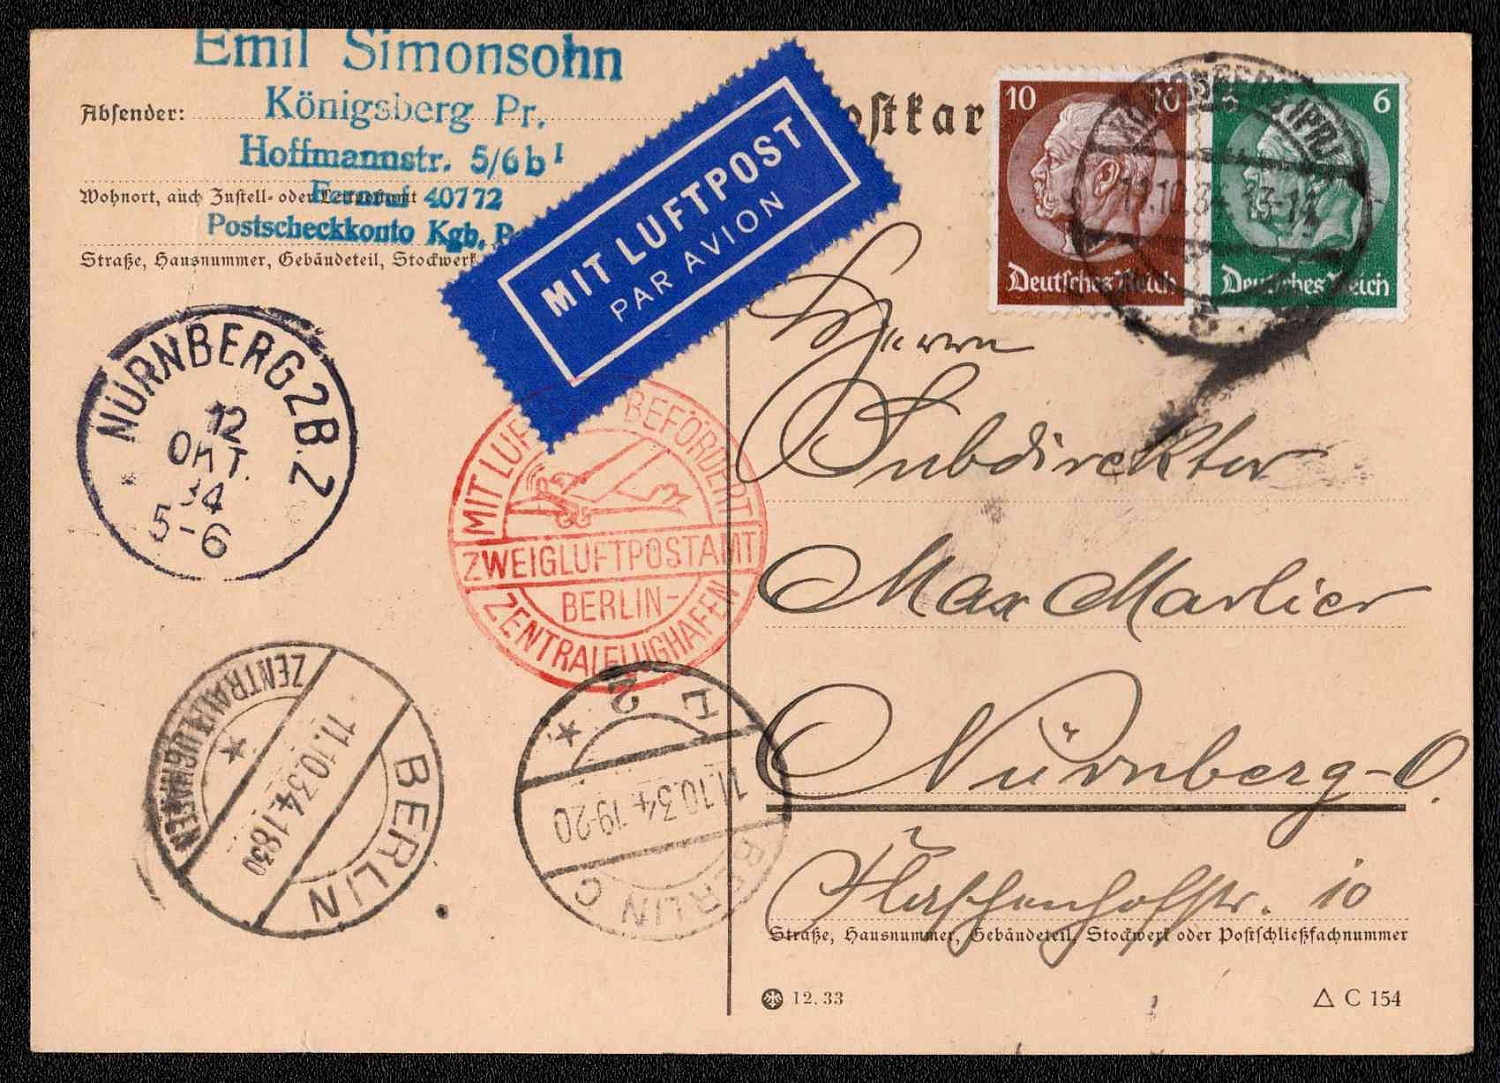 Emil Simonsohn
Absender:
Königsberg Pr.
Hoffmannstr. 5/6 b I
Wohnort, auch Zustell- oder
40772
Postscheckkonto Kgb.
Straße, Hausnummer, Gebäudeteil, Stockwerk
MIT LUFTPOST
PAR AVION
ostkar
10 10
Deutsches Reich
6
Deutsches Reich
KÖNIGSBERG (PR)
11.10.34 13-14
5
NÜRNBERG 2 B. 2
12
OKT.
34
5-6
MIT LUF BEFÖRDERT
ZWEIGLUFTPOSTAMT
BERLIN-
ZENTRALFLUGHAFEN
BERLIN
11.10.34.1830
ZENTRALFLUGHAFEN
BERLIN C
11.10.34.19-20
L 2
Herrn
Subdirektor
Max Marlier
Nürnberg-O.
Flaschenhofstr. 10
Straße, Hausnummer, Gebäudeteil, Stockwerk oder Postschließfachnummer
12. 33
△ C 154